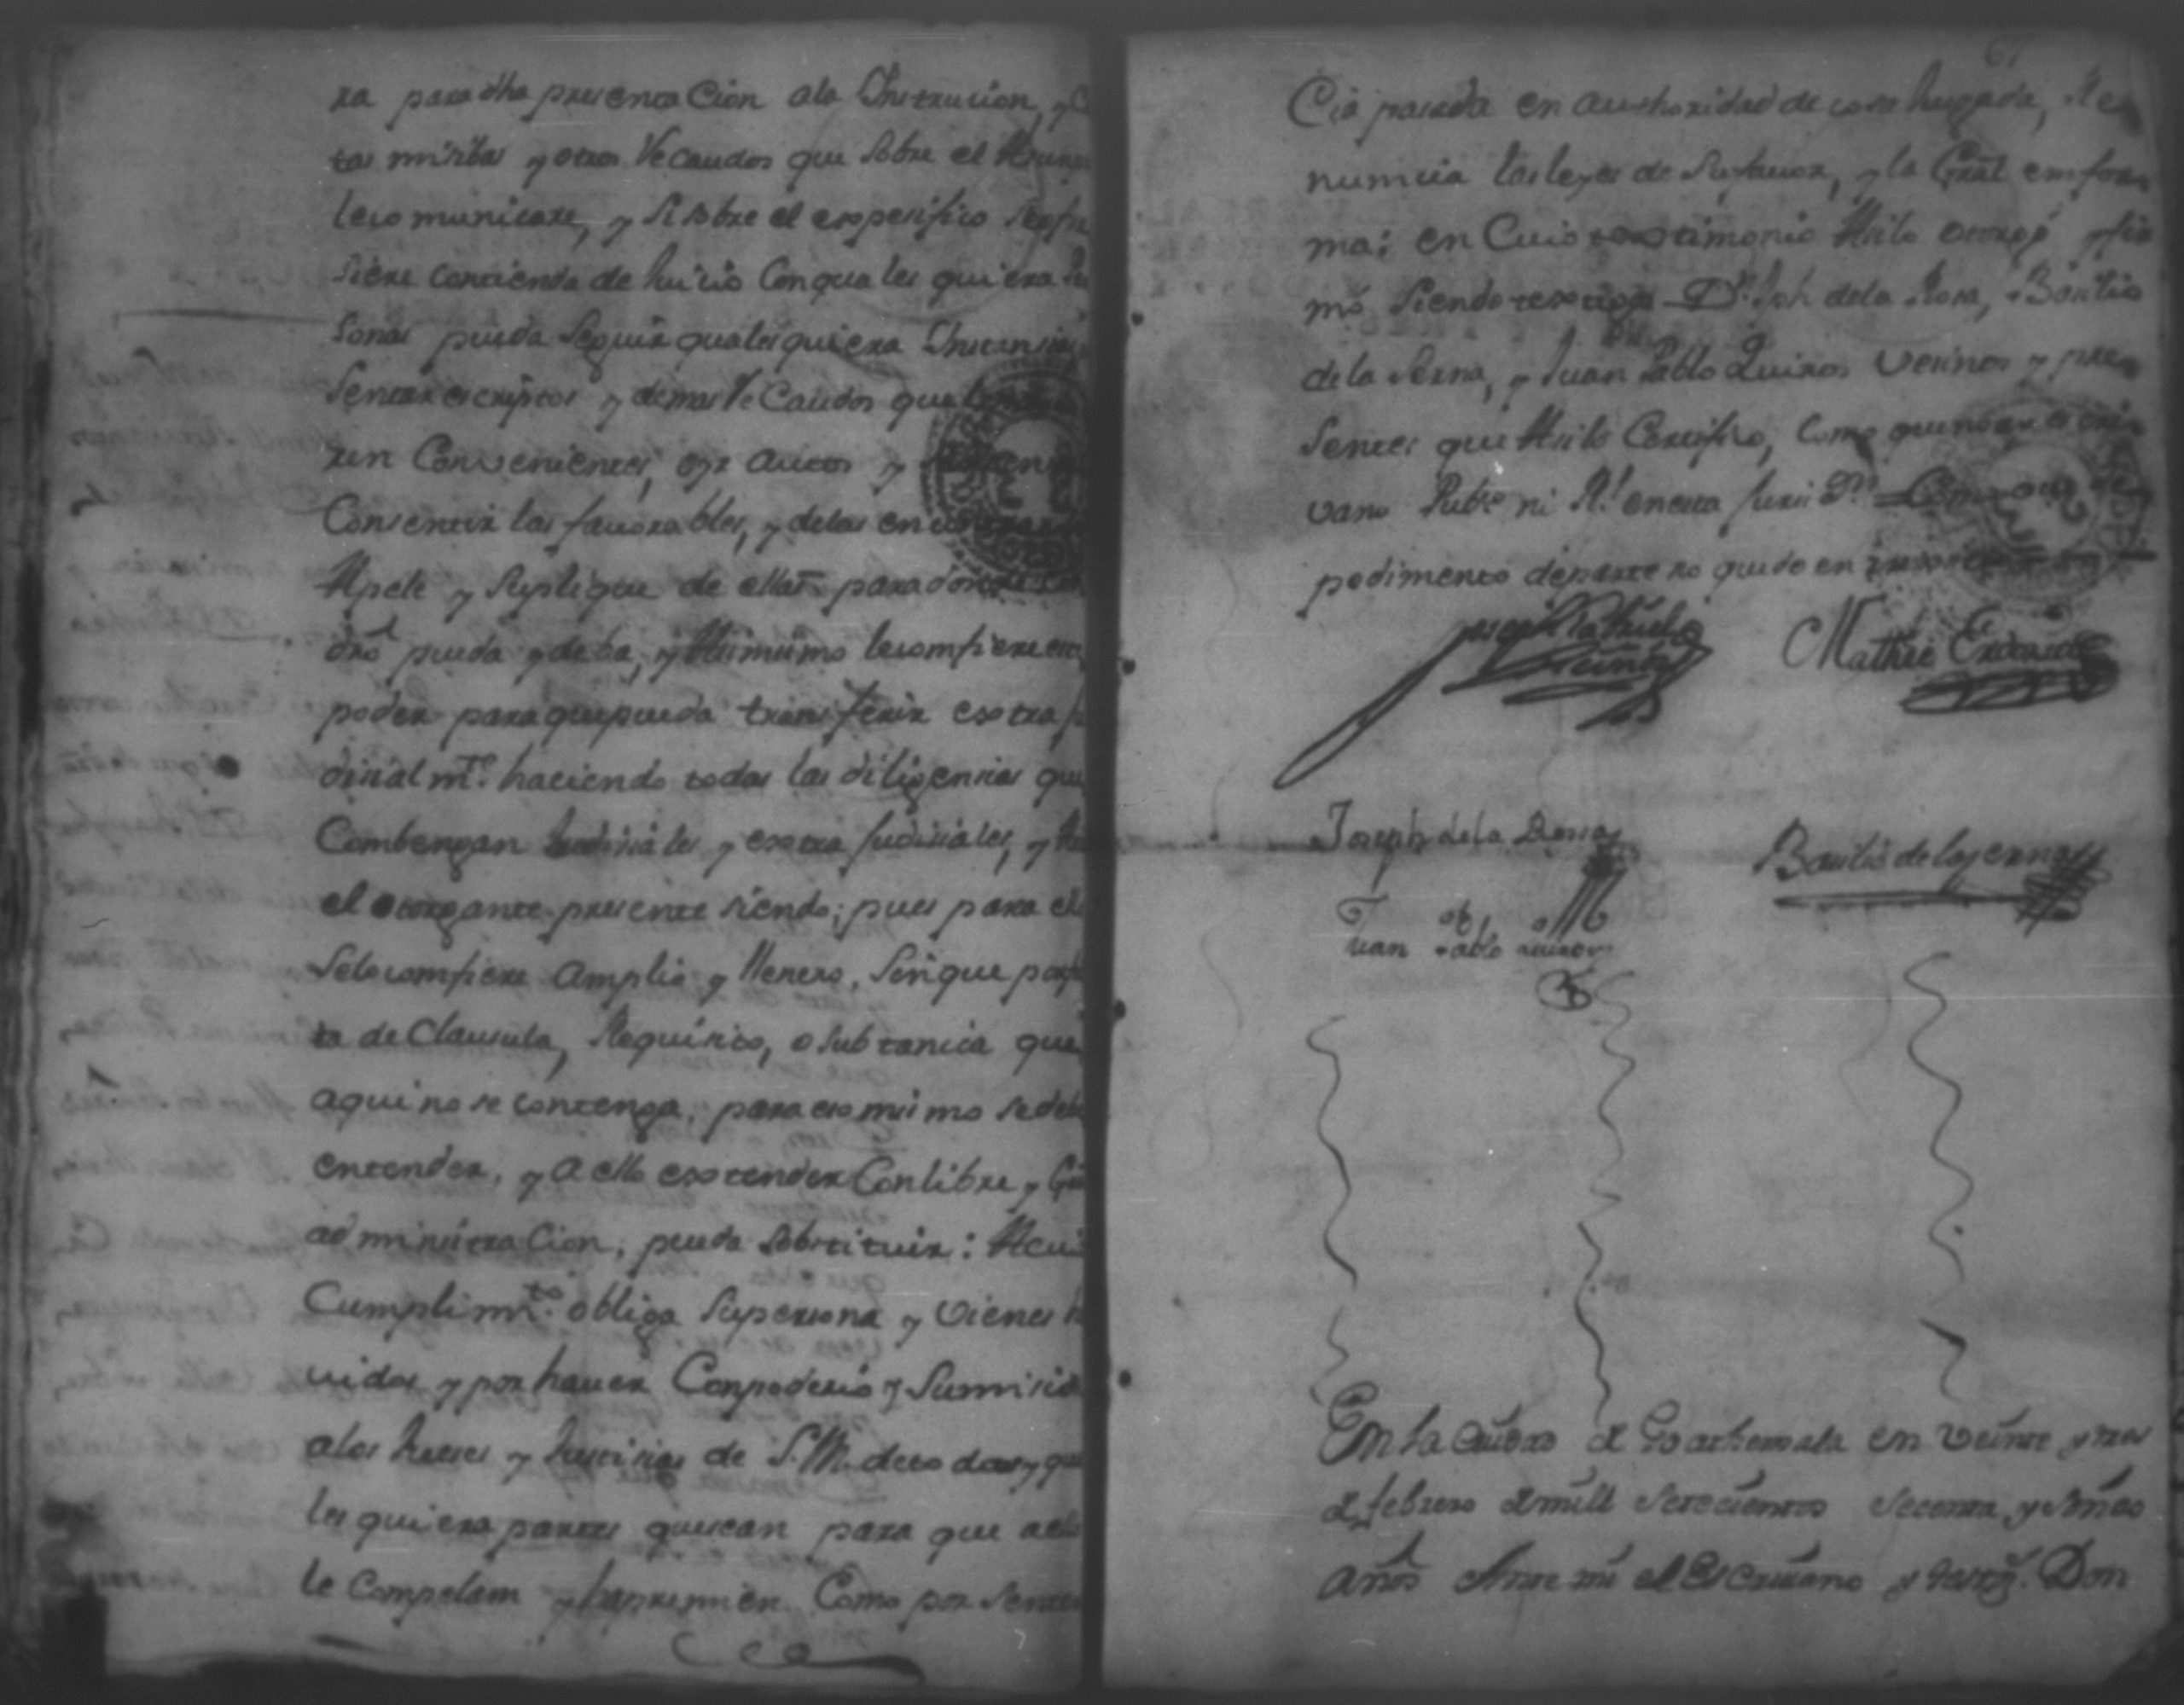 ra para dha presenta Cion ala Instrucion, y
tas misibas y otros Recaudos que sobre el Asump
lecomunicare, y si sobre el expesifico
siere contienda de Juicio Con quales quiera
sonas pueda Seguir quales quiera Instansias
sentar escriptos y demas Recaudos que
ren Convenientes, oyr autos y
Consentir las favorables, y delas en
Apele y suplique de ellas para donde
dro pueda y deba, y Asimismo leconfiere
poder para que pueda transferir extra ju
disial mte. haciendo todas las diligensias que
Combengan Judisiales y extra judisiales, y
el otorgante presente siendo; pues para el
Selo comfiere Amplio y llenero, sin que por
ta de Clausula, Requisito, o substanica que
aqui no se contenga, para eso mismo se deb
entender, y a ello extender Con libre y
administra Cion, pueda sobstituir: Acui
Cumplimto. obliga su persona y vienes
uidos y por hauer Con poderio y Sumision
alos Jueses y Justisias de S.M. de todas y qua
les quiera partes que sean para que a ello
le Compelam y hapremien Como por senten
61
Cia pasada en authoridad de cosa Jusgada, Re
numcia las leyes de su favor, y la Gral en for
ma: en Cuio textimonio Asi lo otorgó y fir
mó siendo textigos Dn. Jph dela Rosa, Basilio
de la Serna, y Juan Pablo Quiros Vesinos y pre
sentes que Asi lo Certifico, Como que no ay escri
vano Pubco ni Rl. en esta Jurisdn. =
pedimento de parte no quedo en
Mathie
Joseph dela Rossa
Basilio de la serna
Juan Pablo Quiros
En la Ciudad d Goathemala en veinte y tres
d febrero d mill Setecientos Secenta y
años Ante mi el Escrivano y testigs. Don